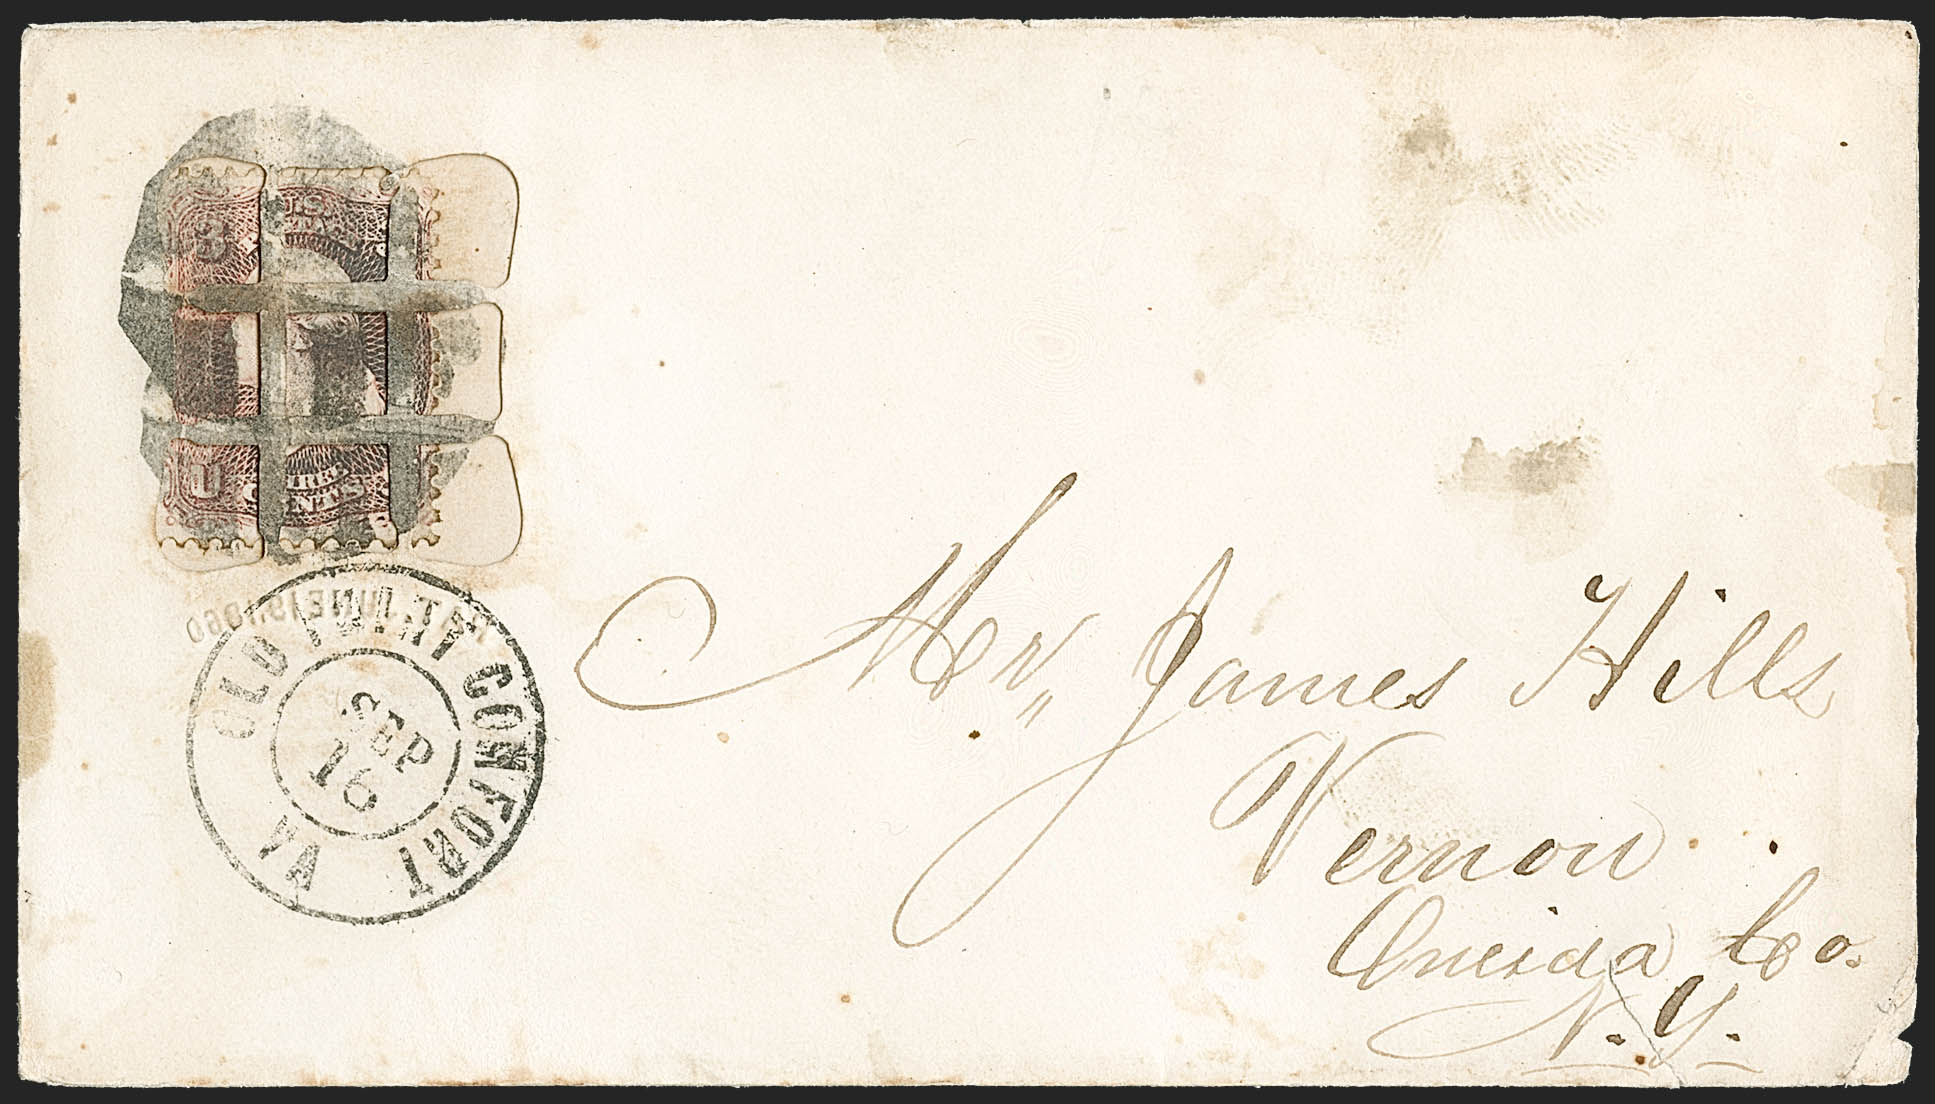 3
U.S.
U
THREE
CENTS
PAT. JUNE 19. 1860
OLD POINT COMFORT
SEP
16
VA
Mr. James Hills
Vernon
Oneida Co.
N.Y.